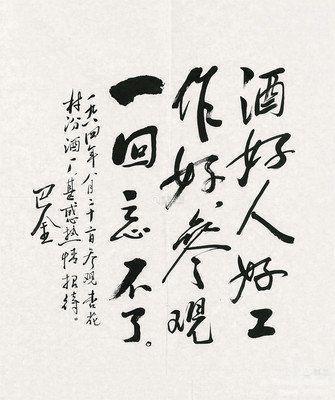 酒好人好工
作好，参观
一回忘不了。
一九八四年八月二十日参观杏花
村汾酒厂甚感热情招待。
巴金